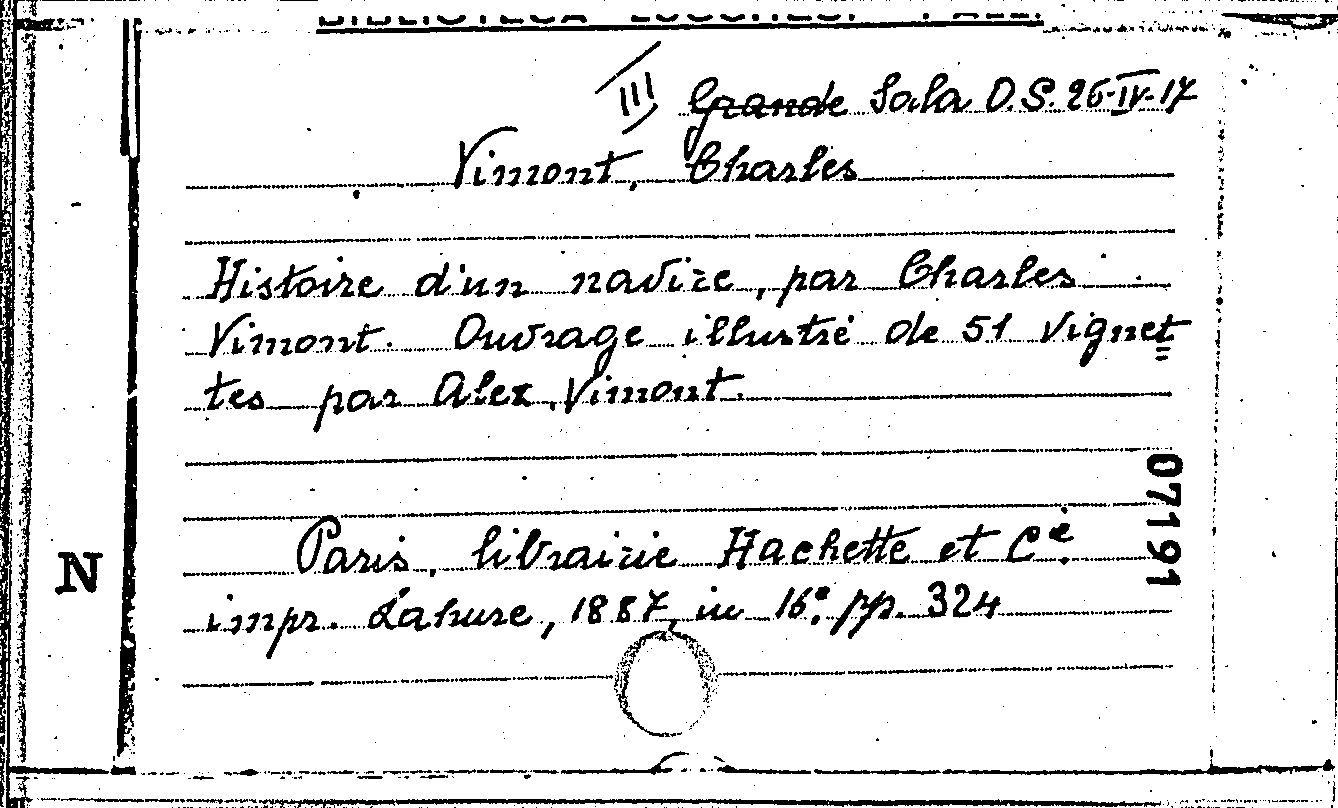 BIBLIOTECA LUCCHESI - PALLI
III Grande Sala D.S. 26-IV-17
Vimont, Charles
Histoire d'un navire, par Charles
Vimont. Ouvrage illustré de 51 vignet=
tes par Alex. Vimont.
Paris, librairie Hachette et C.ie
impr. Lahure, 1887, in 16.° pp. 324
07191
N